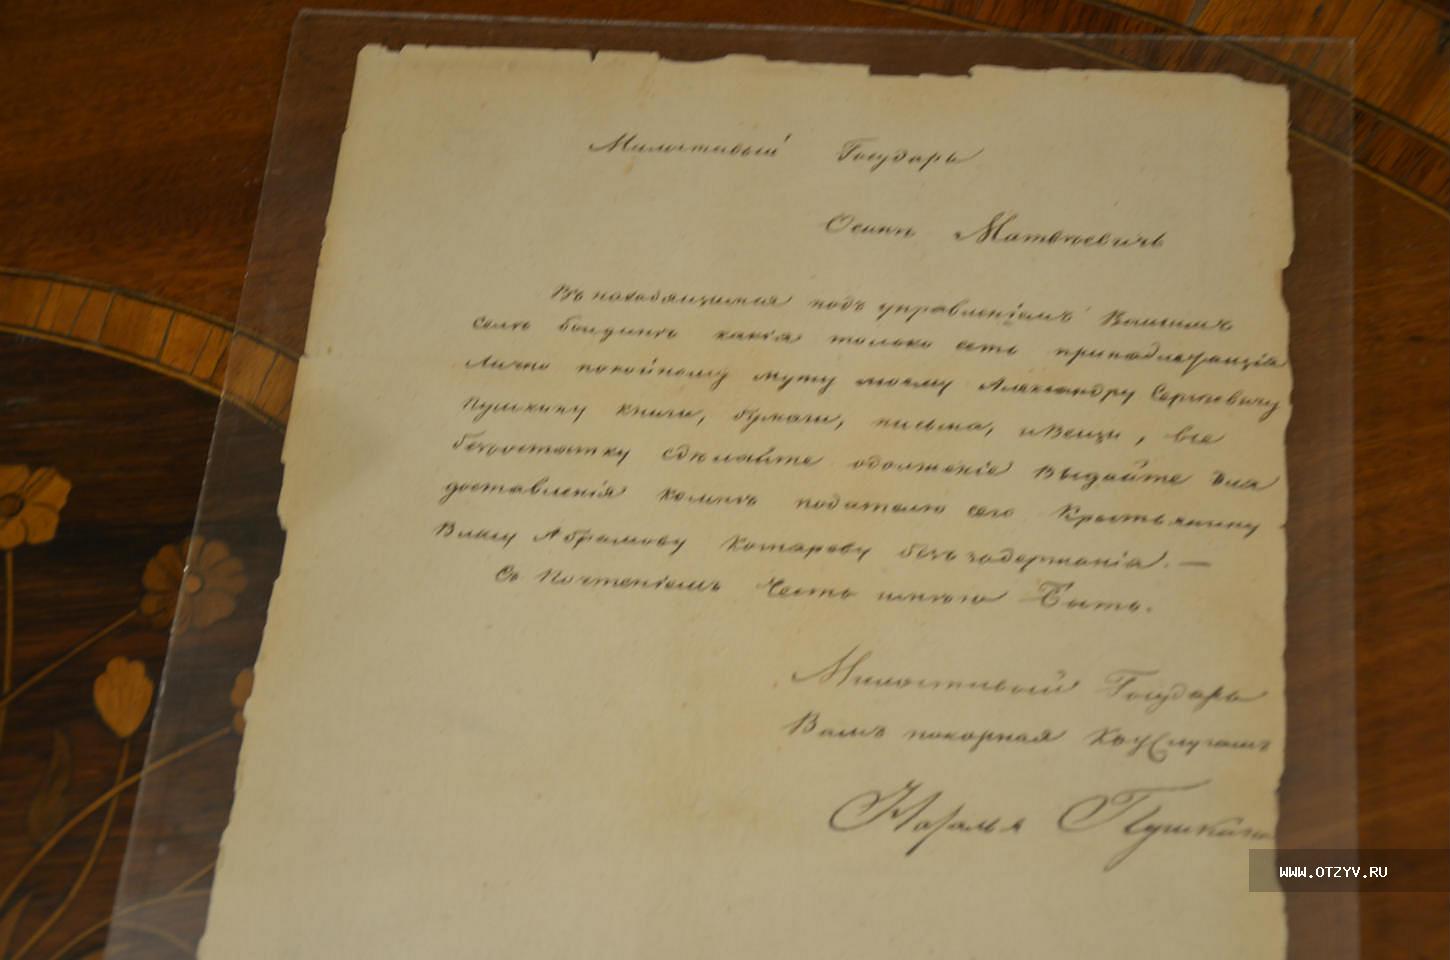 Милостивый Государь
Осипъ Матвѣевичъ
Въ находящимся подъ управленіемъ Вашимъ
селѣ болдинѣ какія только есть принадлежащія
Лично покойному мужу моему Александру Сергѣевичу
Пушкину книги, бумаги, письма, и Вещи, все
безъостатку сдѣлайте одолженіе Выдайте для
доставленія комнѣ подателю сего Крестьянину
Власу Абрамову Комарову безъ задержанія. —
Съ Почтеніемъ Честь имѣю Быть.
Милостивый Государь
Вамъ покорная Коуслугамъ
Наталья Пушкина
WWW.OTZYV.RU